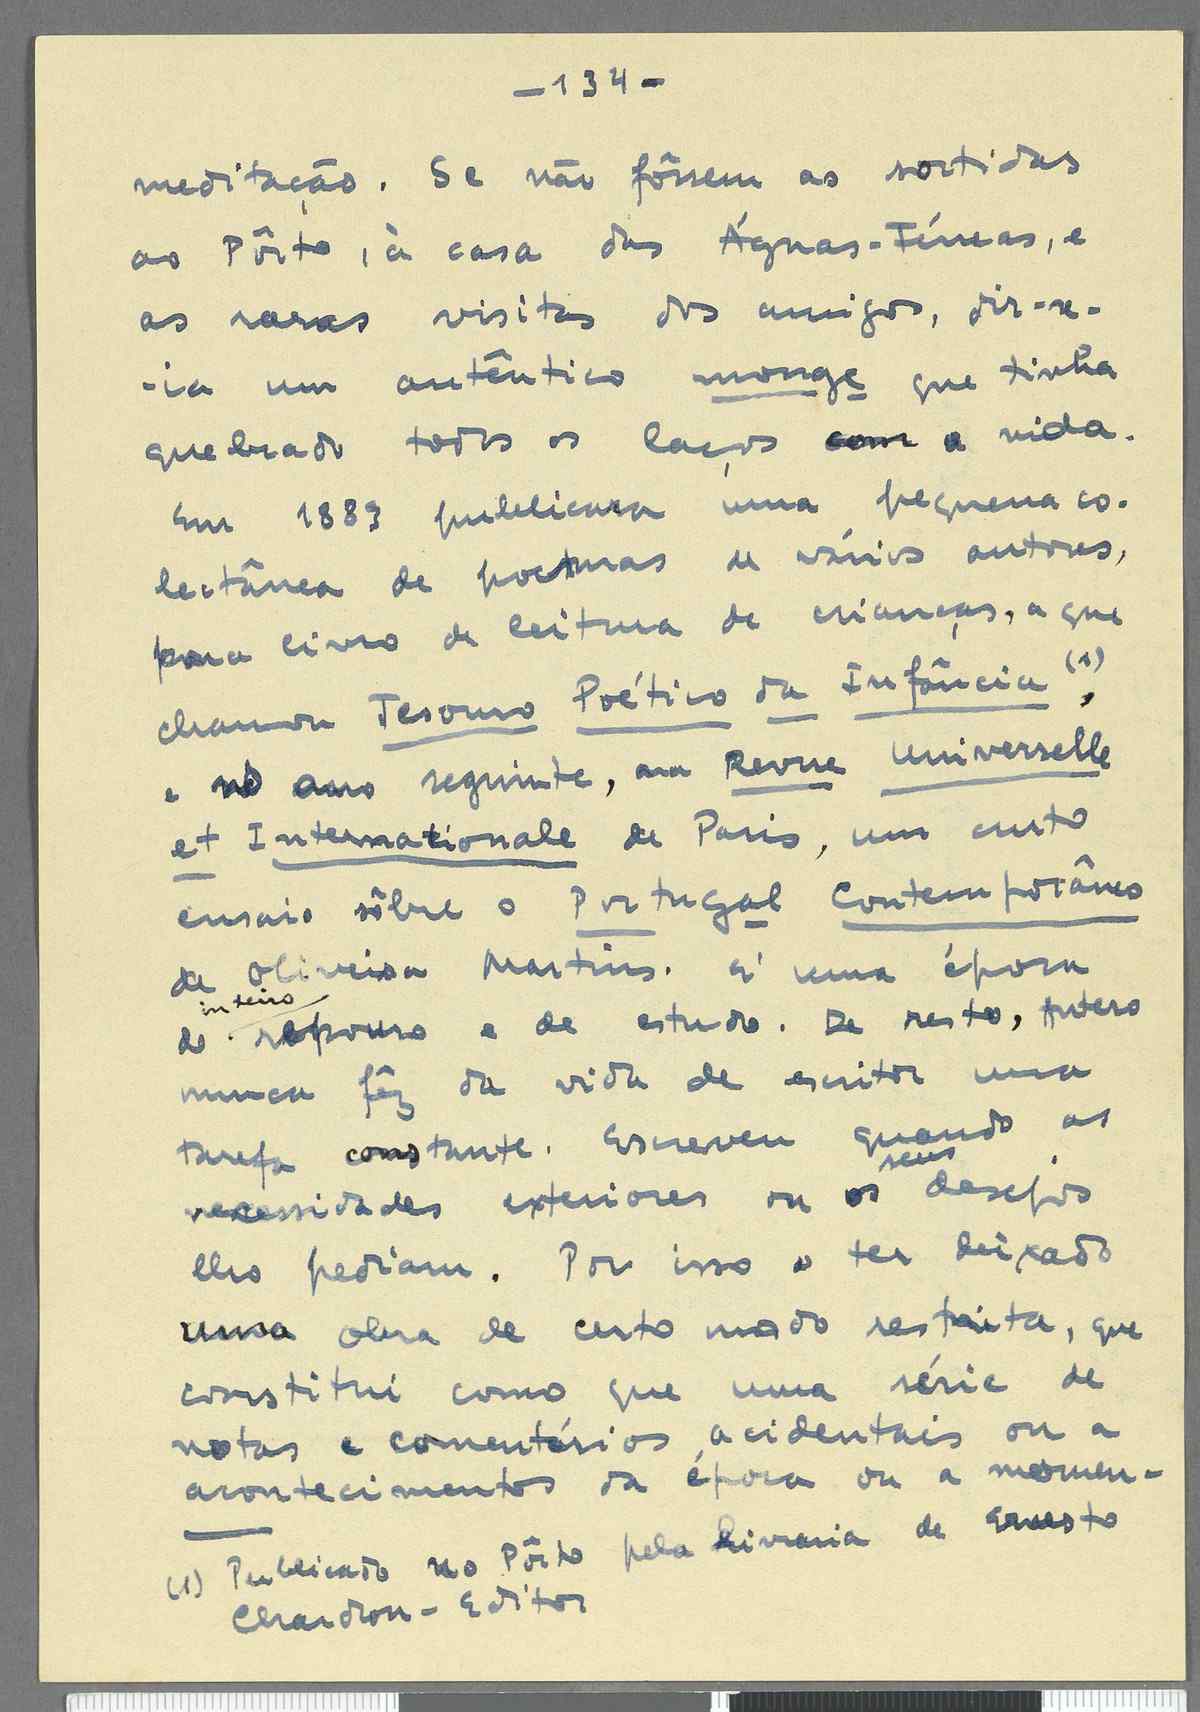 -134-
meditação. Se não fôssem as sortidas
ao Pôrto, à casa das Águas-Férreas, e
as raras visitas dos amigos, dir-se-
-ia um autêntico monge que tinha
quebrado todos os laços com a vida.
Em 1883 publicara uma pequena co-
lectânea de poemas de vários autores,
para livro de leitura de crianças, a que
chamou Tesouro Poético da Infância (1),
e no ano seguinte, na Revue Universelle
et Internationale de Paris, um curto
ensaio sôbre o Portugal Contemporâneo
de Oliveira Martins. É uma época
inteiro
de repouso e de estudo. De resto, Antero
nunca fêz da vida de escritor uma
tarefa constante. Escreveu quando as
seus
necessidades exteriores ou os desejos
lho pediam. Por isso o ter deixado
uma obra de certo modo restrita, que
constitui como que uma série de
notas e comentários acidentais ou a
acontecimentos da época ou a momen-
(1) Publicado no Pôrto pela Livraria de Ernesto
Chardron - Editor